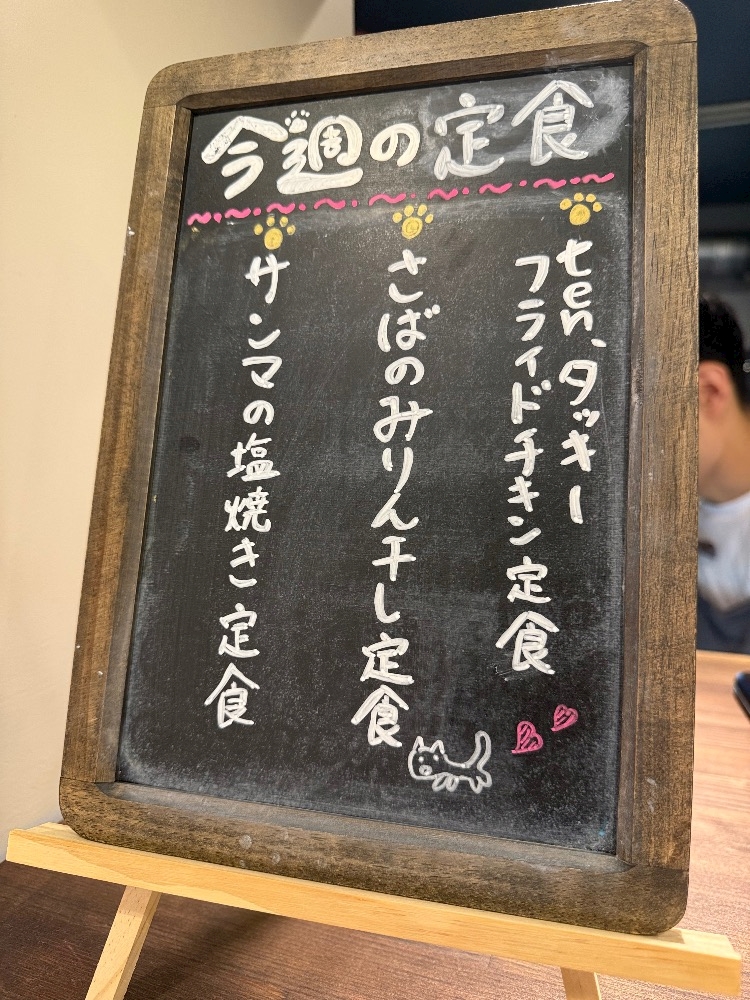 今週の定食
ten、タッキー
フライドチキン定食
さばのみりん干し定食
サンマの塩焼き定食